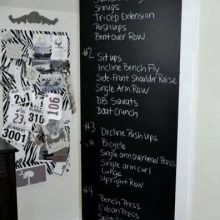 Shrugs
Tricep Extension
Pushups
Bent over Row
#2 Situps
Incline Bench Fly
Side-Front Shoulder Raise
Single Arm Row
DB Squats
Boat Crunch
#3 Decline Push Ups
Bicycle
Single arm overhead Press
Single arm curl
Lunge
Upright Row
#4
Bench Press
106
3001